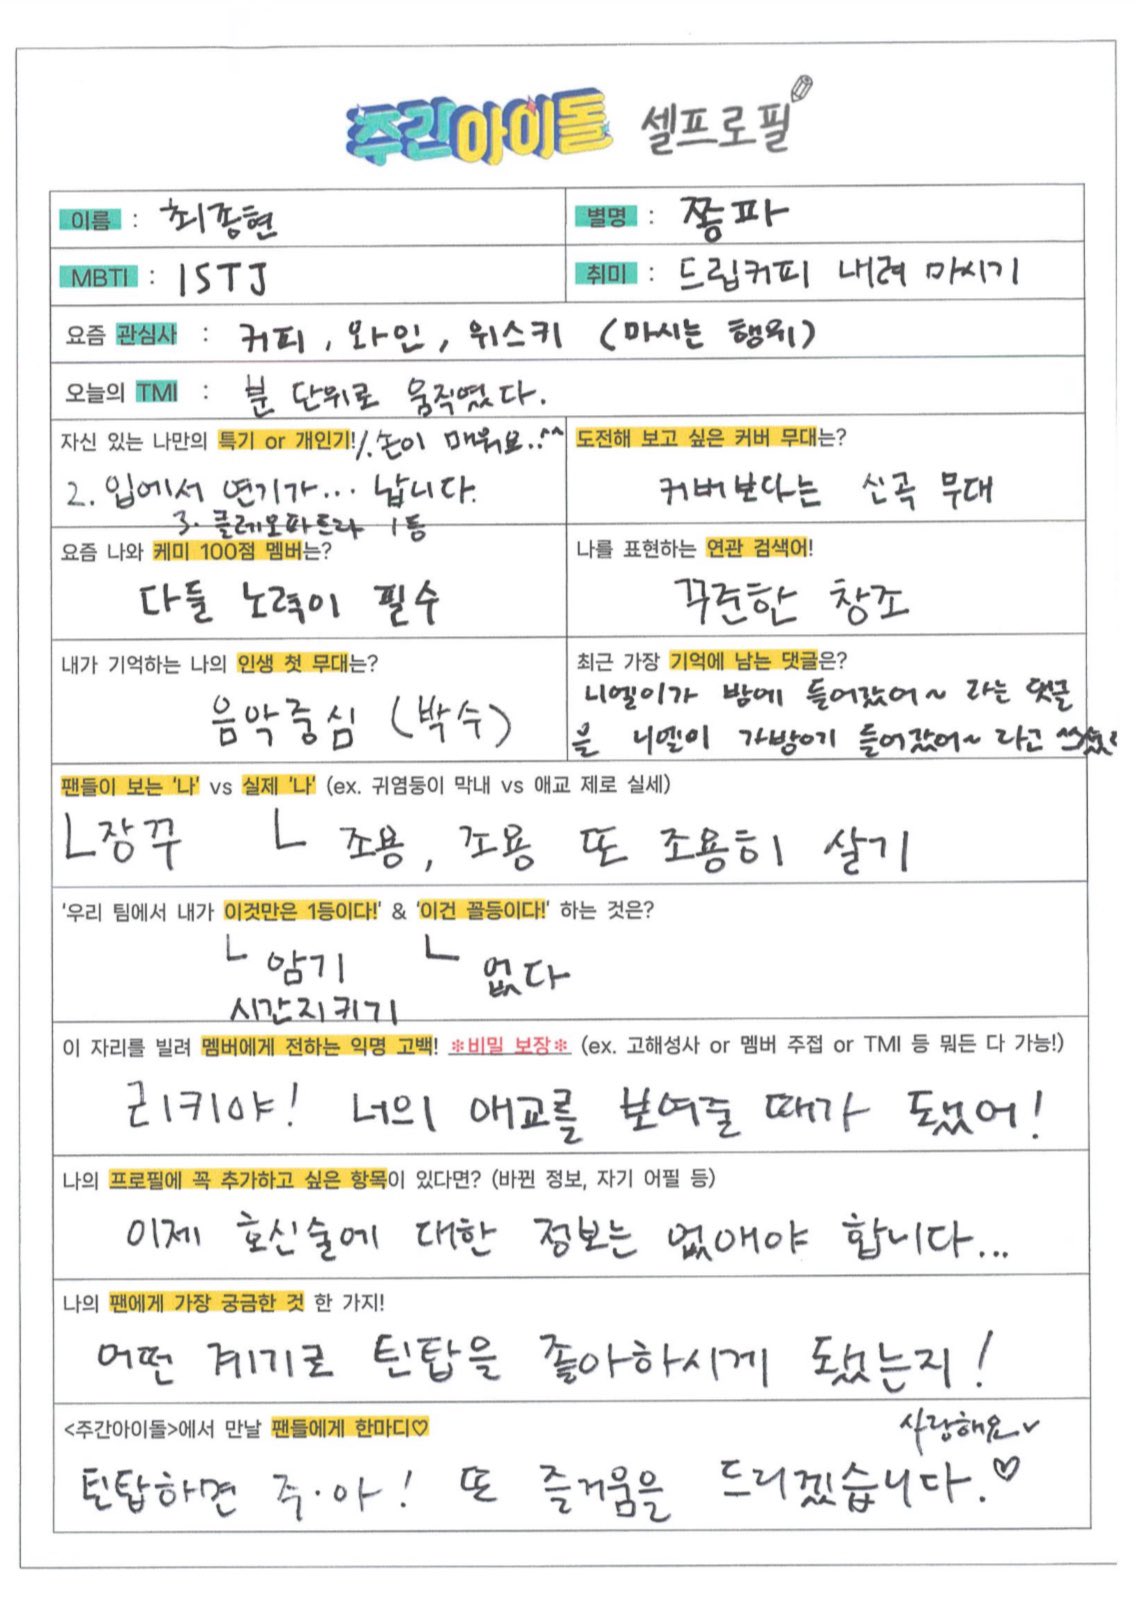 주간아이돌 셀프로필
이름 : 최종현
별명 : 쫑파
MBTI : ISTJ
취미 : 드립커피 내려 마시기
요즘 관심사 : 커피, 와인, 위스키 (마시는 행위)
오늘의 TMI : 분 단위로 움직였다.
자신 있는 나만의 특기 or 개인기! 1. 손이 매워요..^^
2. 입에서 연기가... 납니다.
3. 클레오파트라 1등
도전해 보고 싶은 커버 무대는?
커버보다는 신곡 무대
요즘 나와 케미 100점 멤버는?
다들 노력이 필수
나를 표현하는 연관 검색어!
꾸준한 창조
내가 기억하는 나의 인생 첫 무대는?
음악중심 (박수)
최근 가장 기억에 남는 댓글은?
니엘이가 밤에 들어갔어~ 라는 댓글
을 니엘이 가방에 들어갔어~ 라고
팬들이 보는 '나' vs 실제 '나' (ex. 귀염둥이 막내 vs 애교 제로 실세)
ㄴ장꾸 ㄴ 조용, 조용 또 조용히 살기
'우리 팀에서 내가 이것만은 1등이다!' & '이건 꼴등이다!' 하는 것은?
ㄴ 암기 ㄴ 없다
시간지키기
이 자리를 빌려 멤버에게 전하는 익명 고백! *비밀 보장* (ex. 고해성사 or 멤버 주접 or TMI 등 뭐든 다 가능!)
리키야! 너의 애교를 보여줄 때가 됐어!
나의 프로필에 꼭 추가하고 싶은 항목이 있다면? (바뀐 정보, 자기 어필 등)
이제 호신술에 대한 정보는 없애야 합니다...
나의 팬에게 가장 궁금한 것 한 가지!
어떤 계기로 틴탑을 좋아하시게 됐는지!
<주간아이돌>에서 만날 팬들에게 한마디♡
사랑해요
틴탑하면 주·아! 또 즐거움을 드리겠습니다.♡